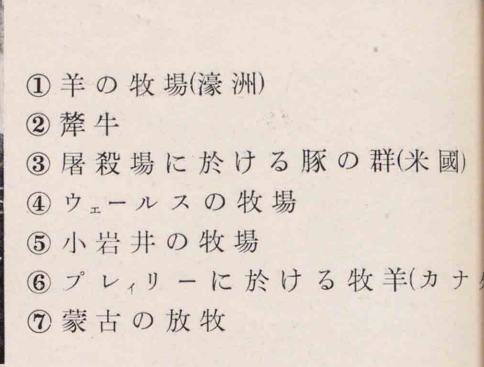 ①羊の牧場(濠洲)
②犛牛
③屠殺場に於ける豚の群(米國)
④ウェールスの牧場
⑤小岩井の牧場
⑥プレィリーに於ける牧羊(カナ
⑦蒙古の放牧